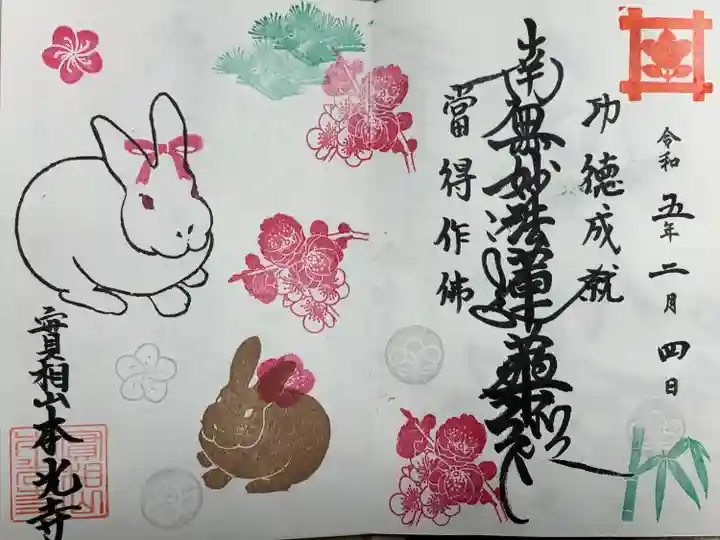 令和五年二月四日
功徳成就
南無妙法蓮華経
當得作佛
實相山本光寺